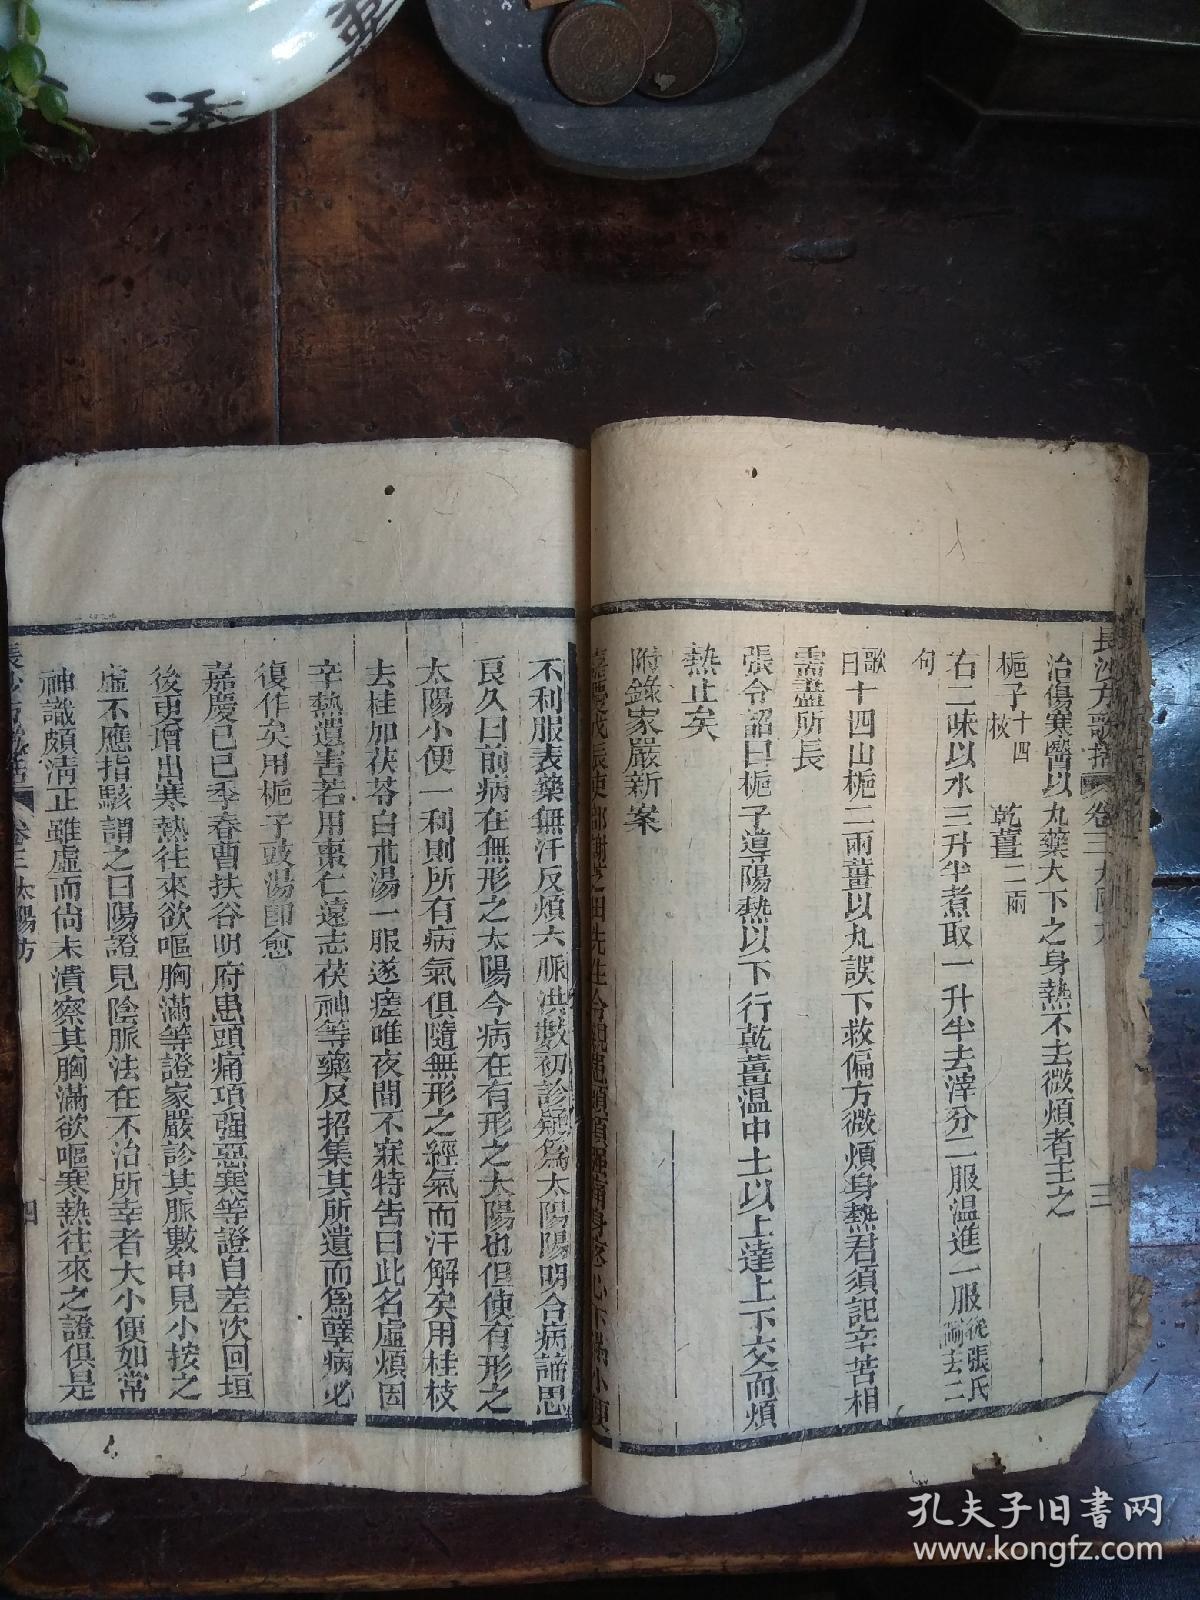 長沙方歌括 卷三 太陽方 三
治傷寒醫以丸藥大下之身熱不去微煩者主之
梔子十四枚 乾薑二兩
右二味以水三升半煮取一升半去滓分二服温進一服從張氏
句
歌曰十四山梔二兩薑以丸誤下救偏方微煩身熱君須記辛苦相
需盡所長
張令韶曰梔子導陽熱以下行乾薑温中土以上達上下交而煩
熱止矣
附錄家嚴新案
不利服表藥無汗反煩六脈洪數初診疑為太陽陽明合病諦思
良久曰前病在無形之太陽今病在有形之太陽也但使有形之
太陽小便一利則所有病氣俱隨無形之經氣而汗解矣用桂枝
去桂加茯苓白朮湯一服遂瘥唯夜間不寐特告曰此名虛煩因
辛熱遺害若用棗仁遠志茯神等藥反招集其所遺而為孽病必
復作矣用梔子豉湯即愈
嘉慶己巳季春曹扶谷明府患頭痛項强惡寒等證自差次回垣
後更增出寒熱往來欲嘔胸滿等證家嚴診其脈數中見小按之
虛不應指駭謂之曰陽證見陰脈法在不治所幸者大小便如常
神識頗淸正雖虛而尚未潰察其胸滿欲嘔寒熱往來之證俱是
卷三太陽方 四
孔夫子旧书网
www.kongfz.com